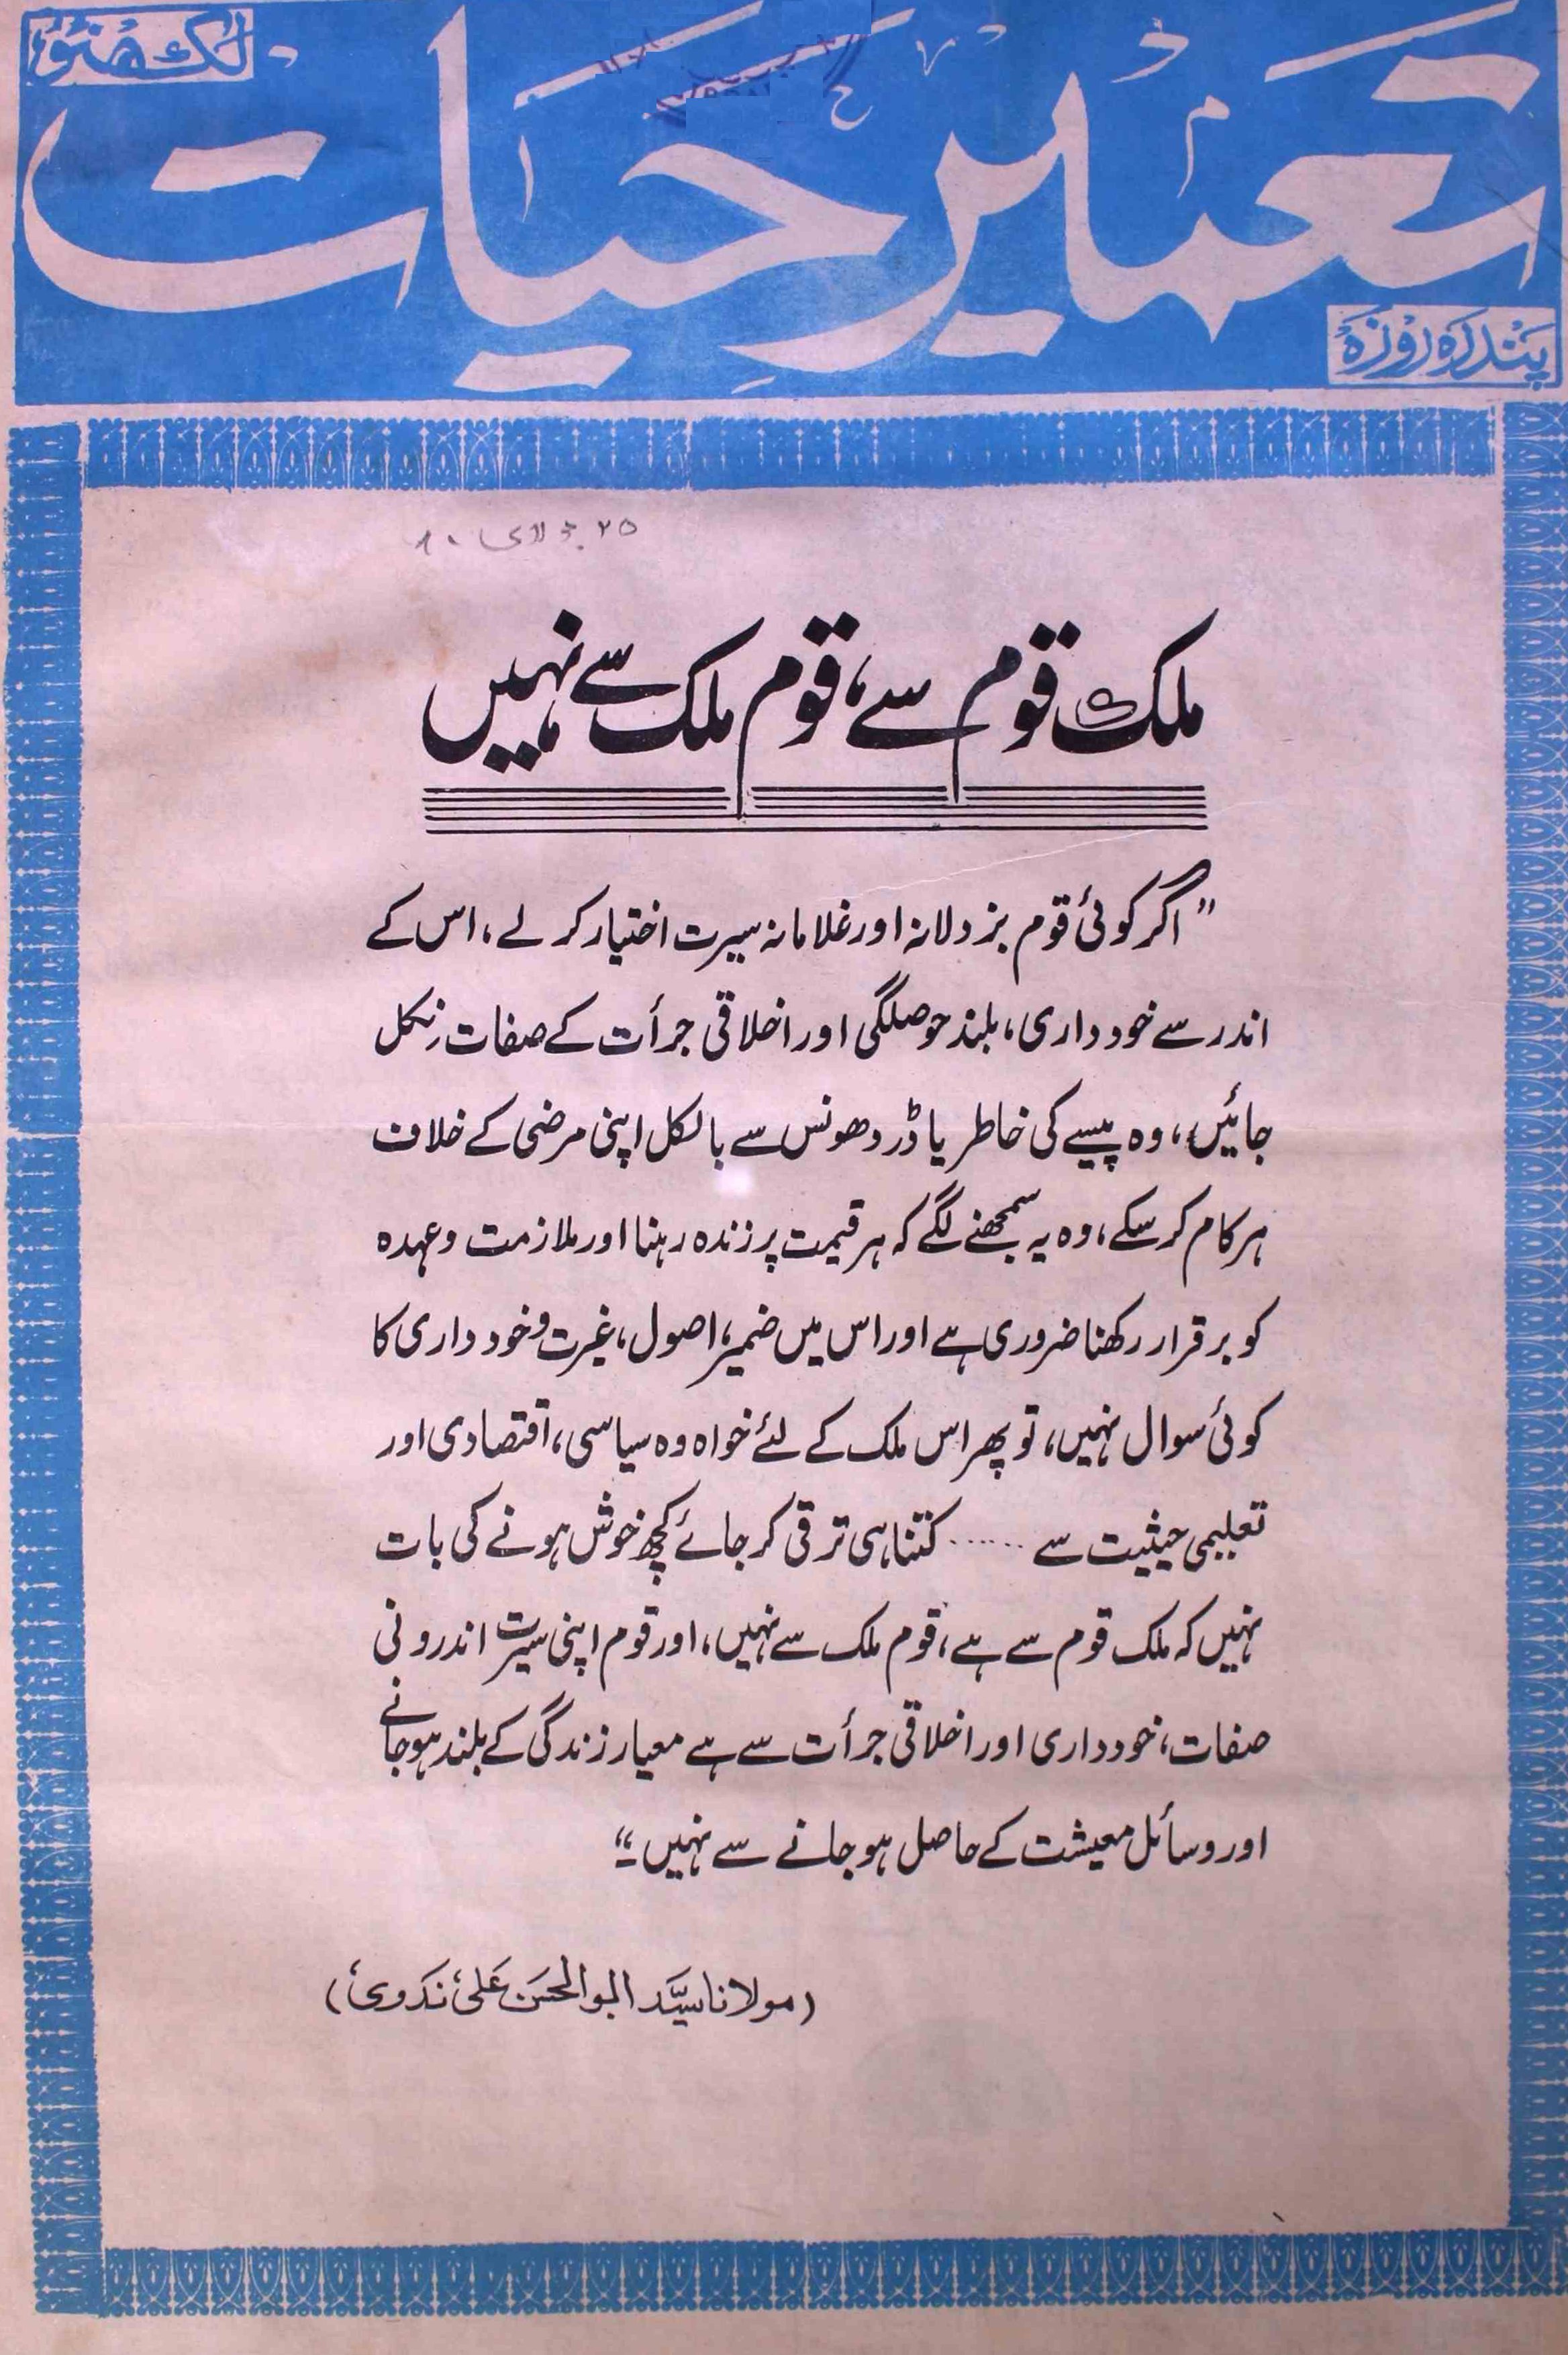 لکھنؤ
تعمیر حیات
پندرہ روزہ
۲۵ جولائی ۹۰
ملک قوم سے، قوم ملک سے نہیں
"اگر کوئی قوم بزدلانہ اور غلامانہ سیرت اختیار کر لے، اس کے
اندر سے خود داری، بلند حوصلگی اور اخلاقی جرأت کے صفات نکل
جائیں، وہ پیسے کی خاطر یا ڈر دھونس سے بالکل اپنی مرضی کے خلاف
ہر کام کر سکے، وہ یہ سمجھنے لگے کہ ہر قیمت پر زندہ رہنا اور ملازمت و عہدہ
کو برقرار رکھنا ضروری ہے اور اس میں ضمیر، اصول، غیرت و خود داری کا
کوئی سوال نہیں، تو پھر اس ملک کے لئے خواہ وہ سیاسی، اقتصادی اور
تعلیمی حیثیت سے ...... کتنا ہی ترقی کر جائے کچھ خوش ہونے کی بات
نہیں کہ ملک قوم سے ہے، قوم ملک سے نہیں، اور قوم اپنی سیرت اندرونی
صفات، خود داری اور اخلاقی جرأت سے ہے معیار زندگی کے بلند ہو جانے
اور وسائل معیشت کے حاصل ہو جانے سے نہیں۔"
(مولانا سید ابو الحسن علی ندوی)